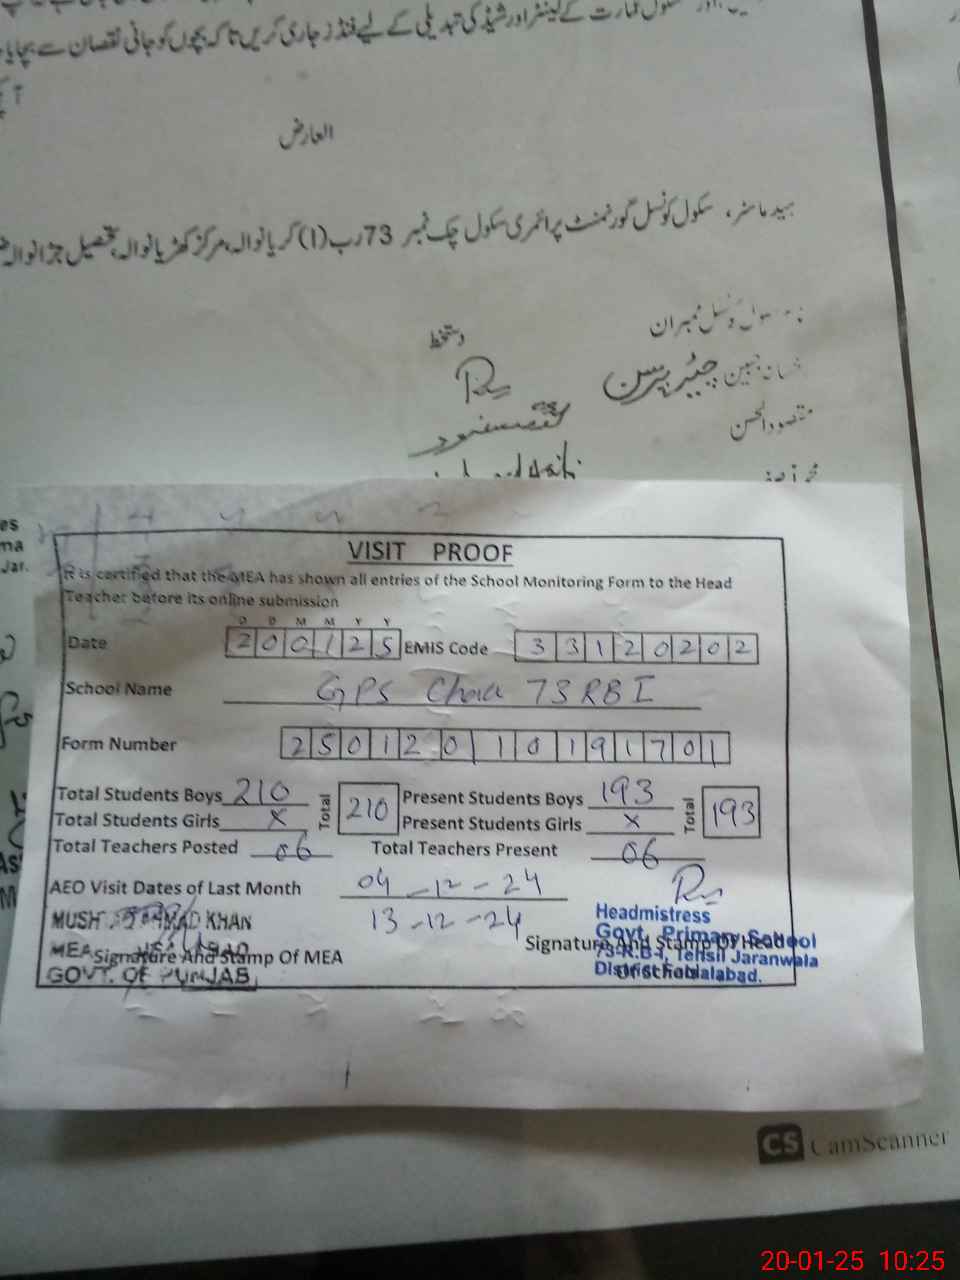 سکول عمارت کے لینٹر اور شیڈ کی تبدیلی کے لیے فنڈز جاری کریں تاکہ بچوں کو جانی نقصان سے بچایا
العارض
ہیڈ ماسٹر، سکول کونسل گورنمنٹ پرائمری سکول چک نمبر 73 رب (1) کریانوالہ، مرکز کھڑیانوالہ، تحصیل جڑانوالہ
سکول کونسل ممبران دستخط
جبین چیئرپرسن
مقصود الحسن
VISIT PROOF
It is certified that the MEA has shown all entries of the School Monitoring Form to the Head
Teacher before its online submission
D D M M Y Y
Date 200125 EMIS Code 33120202
School Name GPS Chak 73 RB I
Form Number 250120110191701
Total Students Boys 210 Total 210 Present Students Boys 193 Total 193
Total Students Girls X Present Students Girls X
Total Teachers Posted 06 Total Teachers Present 06
AEO Visit Dates of Last Month 04-12-24
13-12-24
KHAN
MEA
Signature And Stamp Of MEA
GOVT. OF PUNJAB
Headmistress
Govt. Primary School
73-R.B-I, Tehsil Jaranwala
District Faisalabad.
Signature And Stamp Of Head
Of School
CS CamScanner
20-01-25 10:25